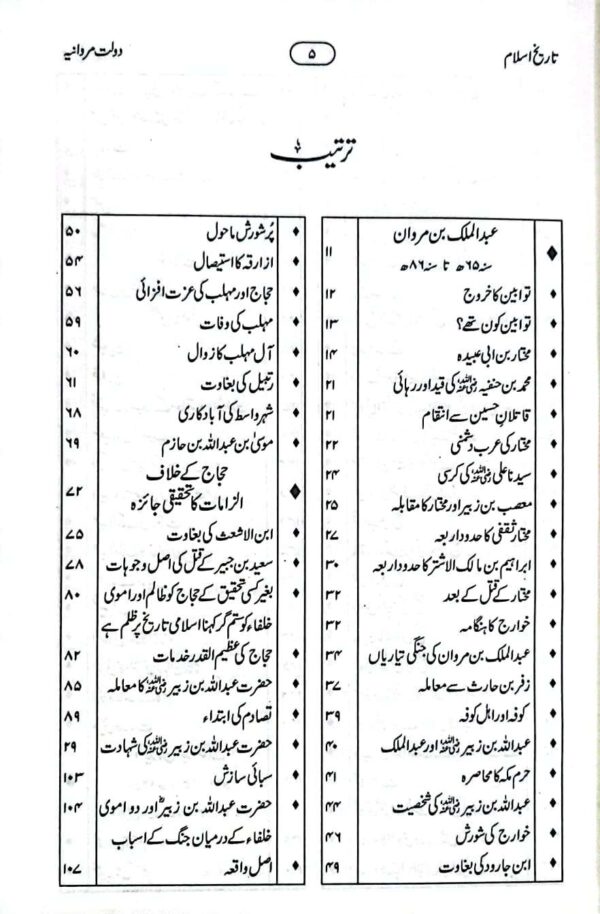 تاریخ اسلام ۵ دولت مروانیہ
ترتیب
عبدالملک بن مروان
سنہ ۶۵ھ تا سنہ ۸۶ھ ۱۱
توابین کا خروج ۱۲
توابین کون تھے؟ ۱۳
مختار بن ابی عبیدہ ۱۴
محمد بن حنفیہ رضی اللہ عنہ کی قید اور رہائی ۲۱
قاتلانِ حسین سے انتقام ۲۱
مختار کی عرب دشمنی ۲۲
سیدنا علی رضی اللہ عنہ کی کرسی ۲۴
معصب بن زبیر اور مختار کا مقابلہ ۲۵
مختار ثقفی کا حدود اربعہ ۲۷
ابراہیم بن مالک الاشتر کا حدود اربعہ ۳۰
مختار کے قتل کے بعد ۳۲
خوارج کا ہنگامہ ۳۲
عبدالملک بن مروان کی جنگی تیاریاں ۳۴
زفر بن حارث سے معاملہ ۳۷
کوفہ اور اہل کوفہ ۳۹
عبداللہ بن زبیر رضی اللہ عنہ اور عبدالملک ۴۰
حرم مکہ کا محاصرہ ۴۱
عبداللہ بن زبیر رضی اللہ عنہ کی شخصیت ۴۴
خوارج کی شورش ۴۶
ابن جارود کی بغاوت ۴۹
پُر شورش ماحول ۵۰
ازارقہ کا استیصال ۵۴
حجاج اور مہلب کی عزت افزائی ۵۶
مہلب کی وفات ۵۹
آل مہلب کا زوال ۶۰
رتبیل کی بغاوت ۶۱
شہر واسط کی آباد کاری ۶۸
موسیٰ بن عبداللہ بن حازم ۶۹
حجاج کے خلاف
الزامات کا تحقیقی جائزہ ۷۲
ابن الاشعث کی بغاوت ۷۵
سعید بن جبیر کے قتل کی اصل وجوہات ۷۸
بغیر کسی تحقیق کے حجاج کو ظالم اور اموی ۸۰
خلفاء کو ستم گر کہنا اسلامی تاریخ پر ظلم ہے
حجاج کی عظیم القدر خدمات ۸۲
حضرت عبداللہ بن زبیر رضی اللہ عنہ کا معاملہ ۸۵
تصادم کی ابتداء ۸۹
حضرت عبداللہ بن زبیر رضی اللہ عنہ کی شہادت ۲۹
سبائی سازش ۱۰۳
حضرت عبداللہ بن زبیرؓ اور دو اموی ۱۰۴
خلفاء کے درمیان جنگ کے اسباب
اصل واقعہ ۱۰۷